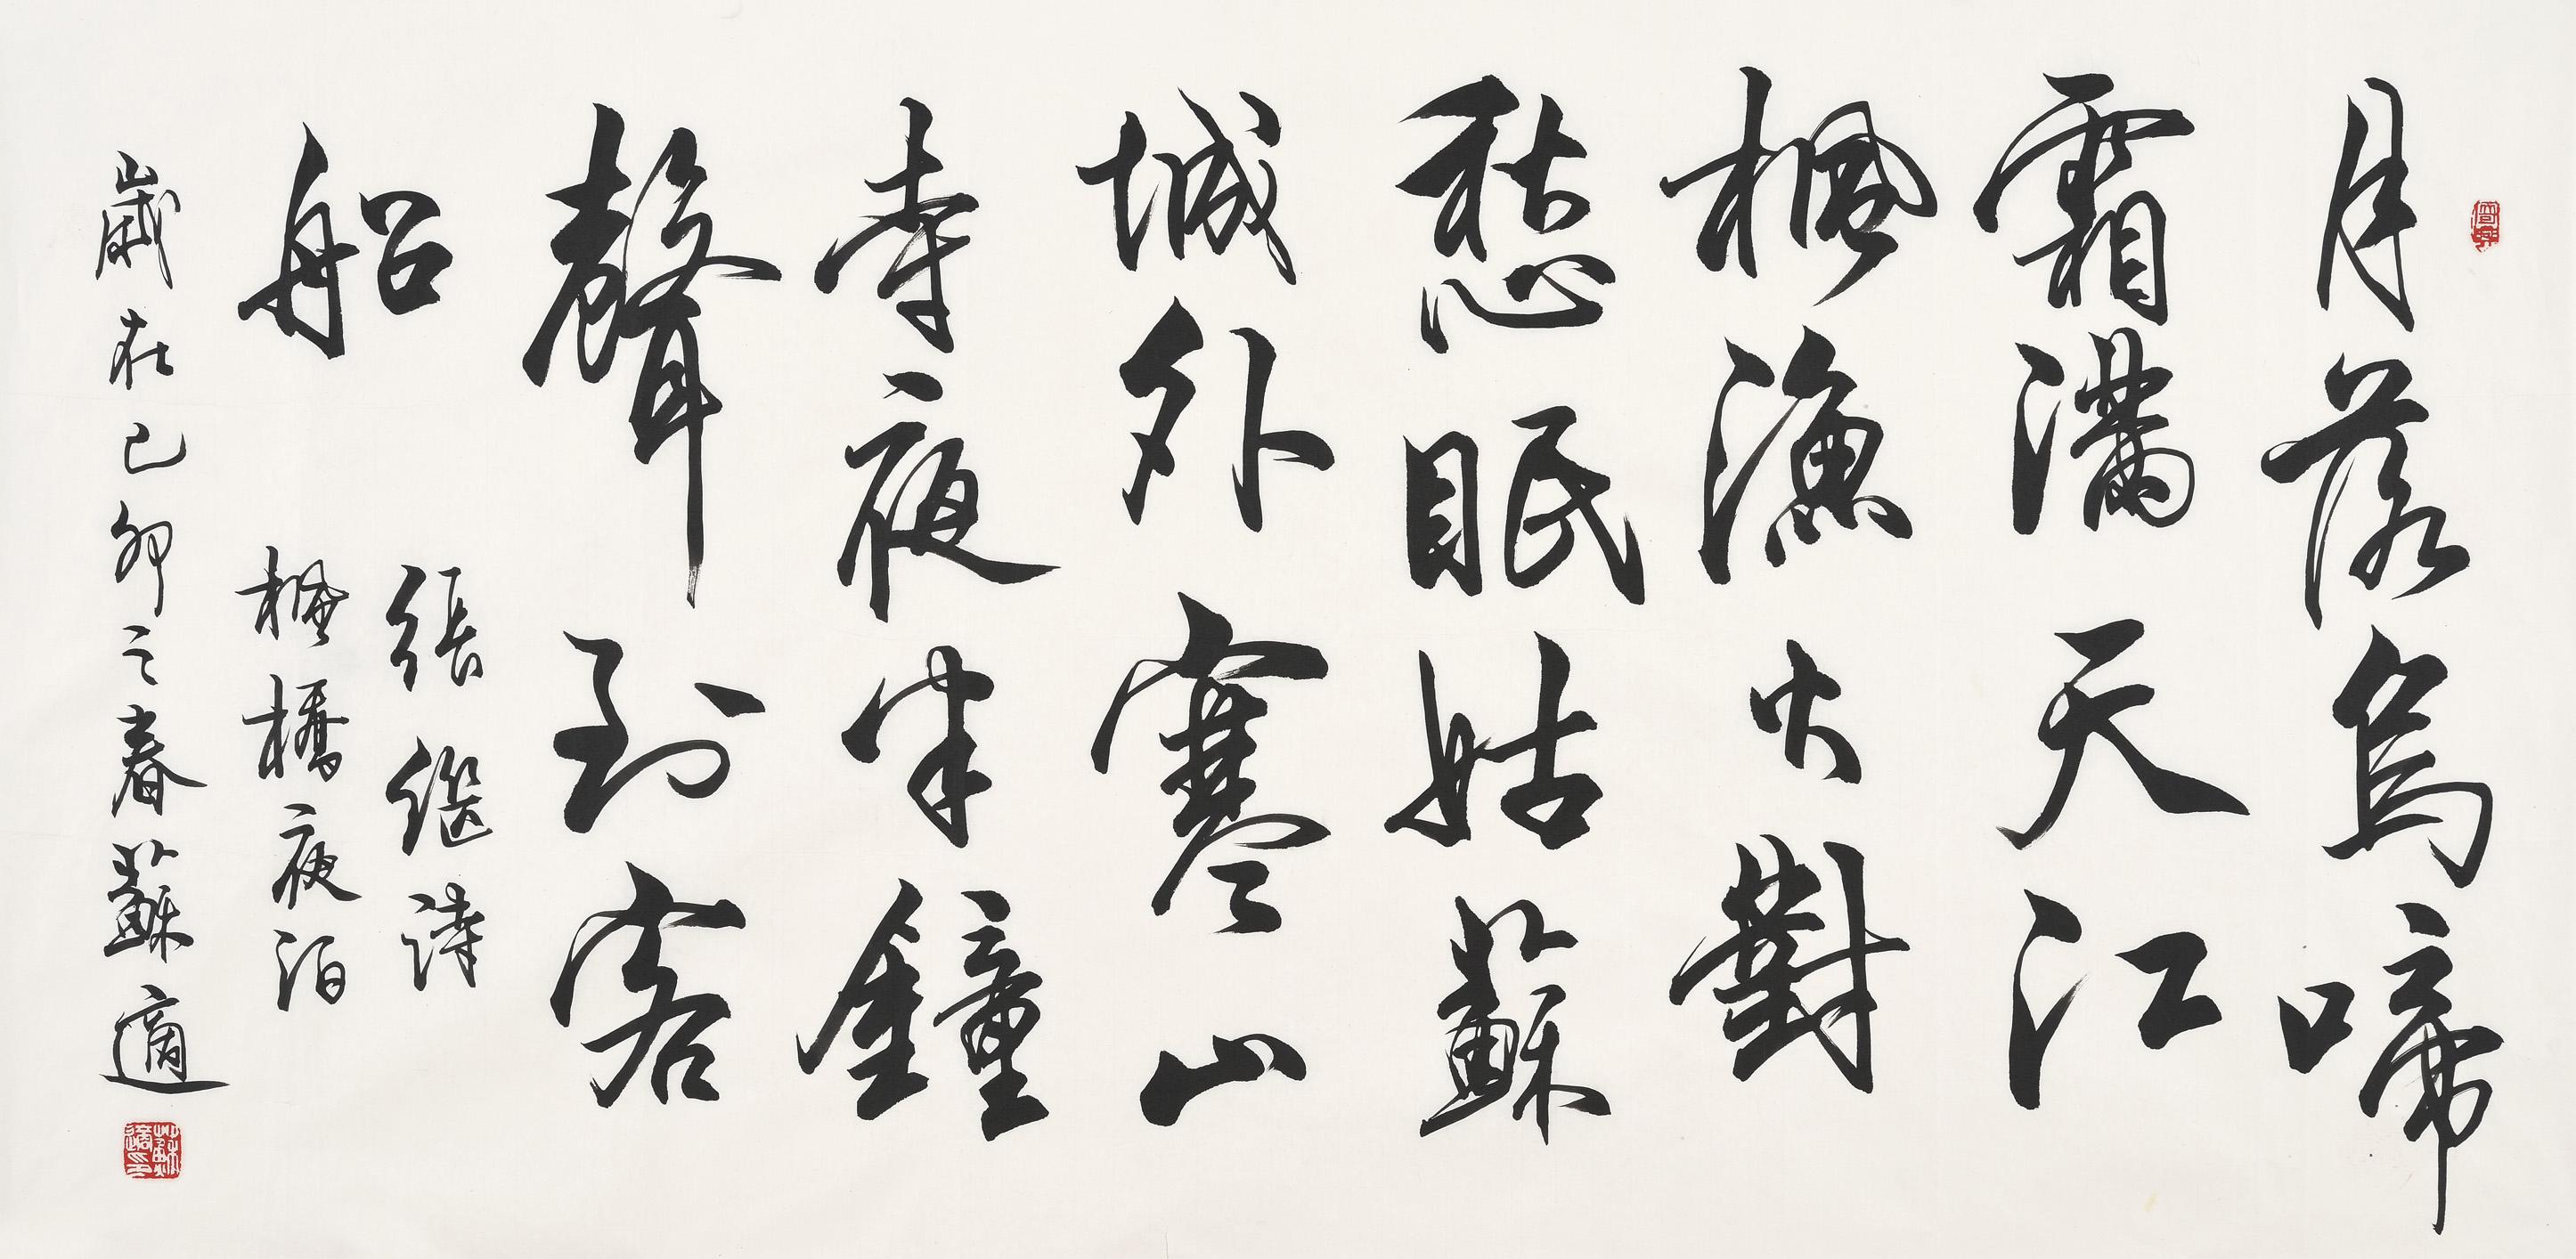 月落烏啼
霜滿天江
楓漁火對
愁眠姑蘇
城外寒山
寺夜半鐘
聲到客
船
張繼詩
楓橋夜泊
歲在己卯之春蘇適
蘇適之印